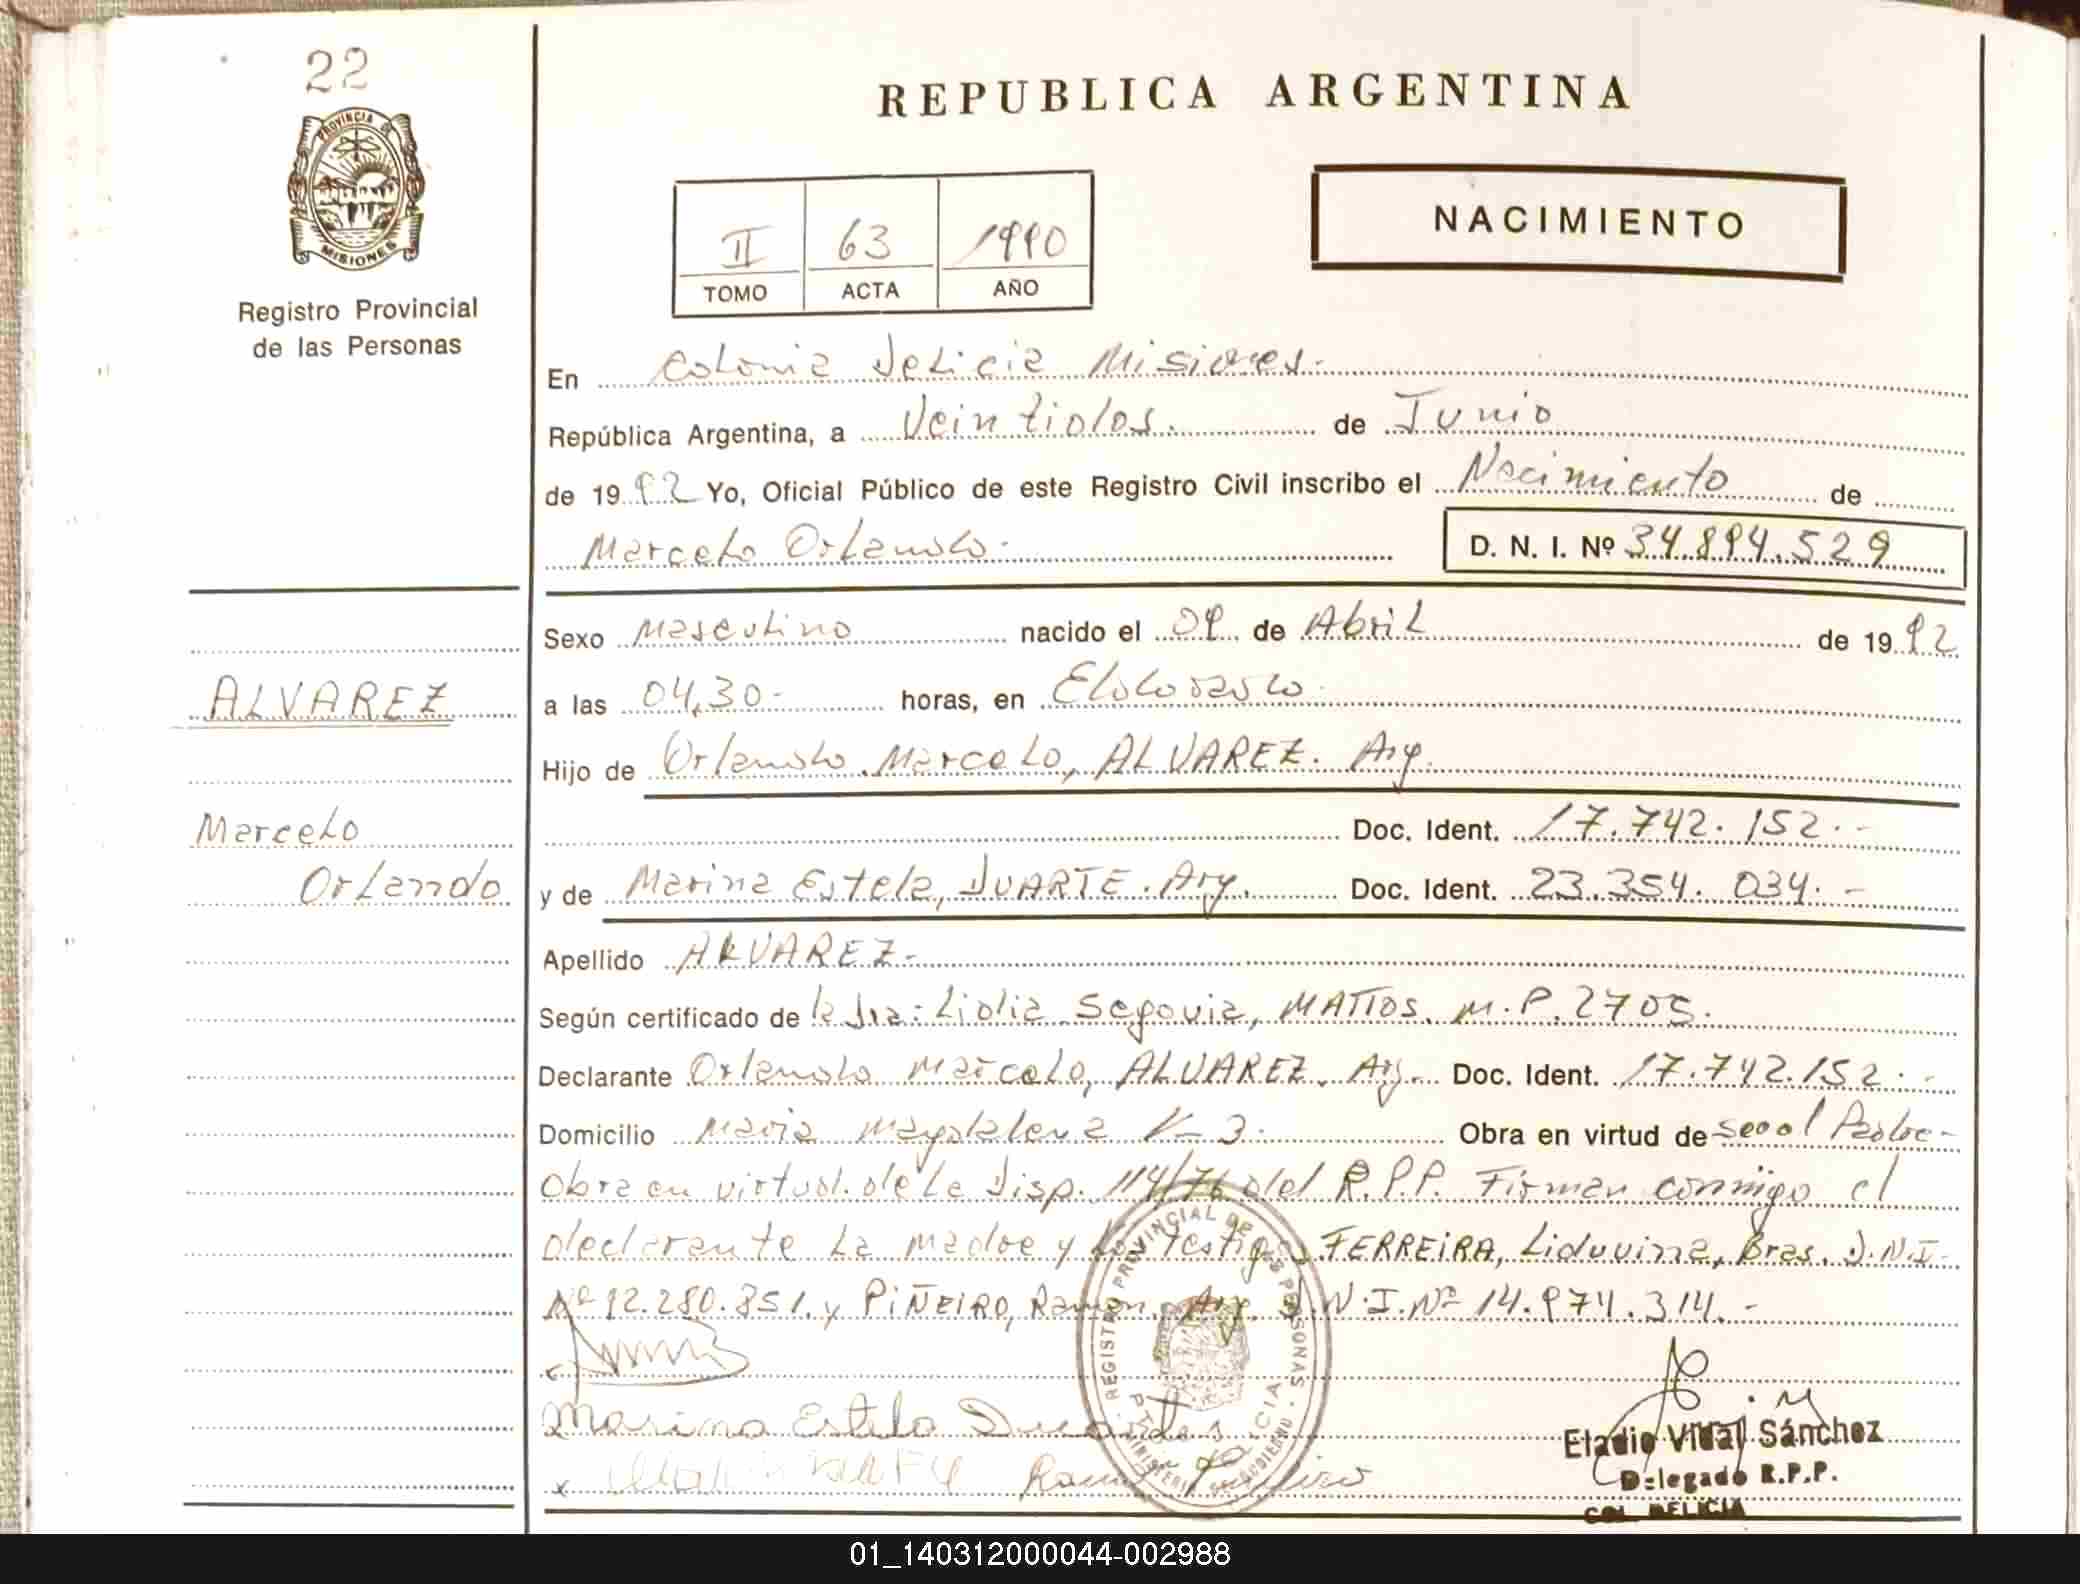 22
PROVINCIA DE
MISIONES
Registro Provincial
de las Personas
REPUBLICA ARGENTINA
II 63 1990
TOMO ACTA AÑO
NACIMIENTO
En Colonia Delicia Misiones.
República Argentina, a Veintidos. de Junio
de 1992 Yo, Oficial Público de este Registro Civil inscribo el Nacimiento de
Marcelo Orlando. D. N. I. Nº 34.894.529
Sexo Masculino nacido el 09 de Abril de 1992
a las 04,30- horas, en Eldorado.
Hijo de Orlando Marcelo, ALVAREZ. Arg.
Doc. Ident. 17.742.152.-
y de Marina Estela, DUARTE. Arg. Doc. Ident. 23.354.034.-
Apellido ALVAREZ.-
Según certificado de la Dra: Lidia Segovia, MATTOS. M.P. 2705.
Declarante Orlando Marcelo, ALVAREZ. Arg. Doc. Ident. 17.742.152.-
Domicilio Maria Magdalena K-3. Obra en virtud de ser el Padre-
Obra en virtud de la Disp. 114/76 del R.P.P. Firman conmigo el
declarante la madre y los testigos FERREIRA, Liduvina, Bras. D.N.I-
Nº 92.280.851. y PIÑEIRO, Ramon. Arg. D.N.I. Nº 14.974.314.-
Marina Estela Duarte
Ramon Piñeiro
ALVAREZ
Marcelo
Orlando
REGISTRO PROVINCIAL DE LAS PERSONAS
Eladio Vidal Sánchez
Delegado R.P.P.
COL. DELICIA
01_140312000044-002988